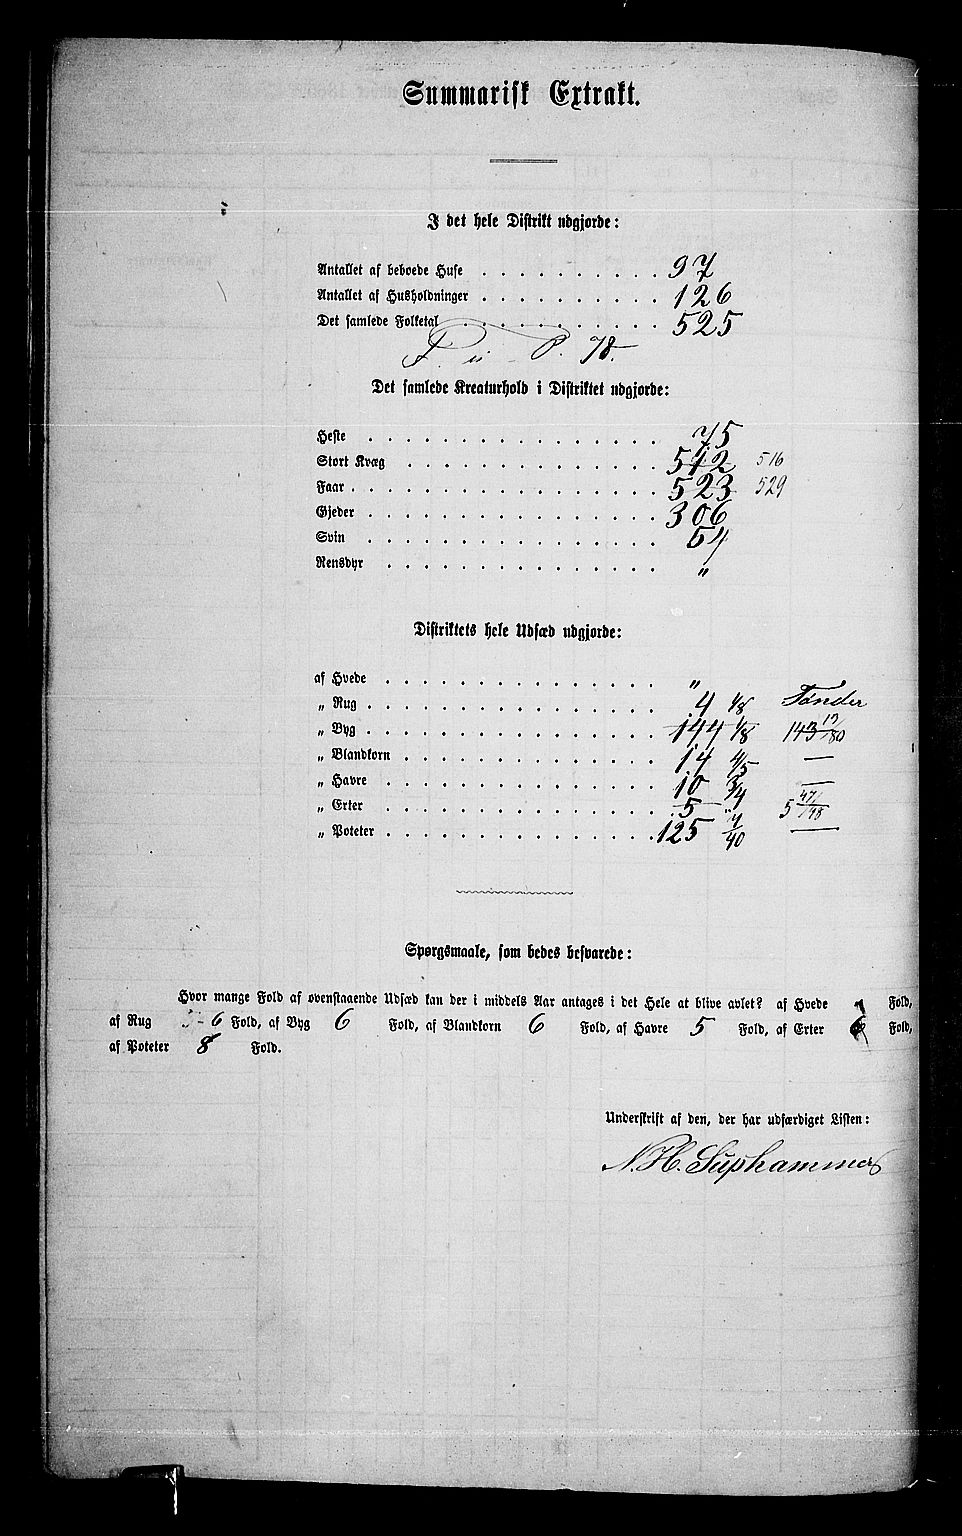 Summarisk Extrakt.
I det hele Distrikt udgjorde:
Antallet af beboede Huse . . . . . . . . . . 97
Antallet af Husholdninger . . . . . . . . . . 126
Det samlede Folketal . . . . . . . . . . . 525
F. u. P. 78.
Det samlede Kreaturhold i Distriktet udgjorde:
Heste . . . . . . . . . . . . . . . . 75
Stort Kvæg . . . . . . . . . . . . . . 512 516
Faar . . . . . . . . . . . . . . . . . 523 529
Gjeder . . . . . . . . . . . . . . . . 306
Svin . . . . . . . . . . . . . . . . 64
Rensdyr . . . . . . . . . . . . . . . "
Distriktets hele Udsæd udgjorde:
af Hvede . . . . . . . . . . . . . . . "
„ Rug . . . . . . . . . . . . . . . . 4 1/8 Tønder
„ Byg . . . . . . . . . . . . . . . . 144 1/8 143 /80
„ Blandkorn . . . . . . . . . . . . . . 14 4/5 —
„ Havre . . . . . . . . . . . . . . . 10 3/4 —
„ Erter . . . . . . . . . . . . . . . . 5 " 5 47/48
„ Poteter . . . . . . . . . . . . . . . 125 /40 —
Spørgsmaale, som bedes besvarede:
Hvor mange Fold af ovenstaaende Udsæd kan der i middels Aar antages i det Hele at blive avlet? af Hvede Fold,
af Rug 5-6 Fold, af Byg 6 Fold, af Blandkorn 6 Fold, af Havre 5 Fold, af Erter 6 Fold,
af Poteter 8 Fold.
Underskrift af den, der har udfærdiget Listen:
N. H. Suphammer